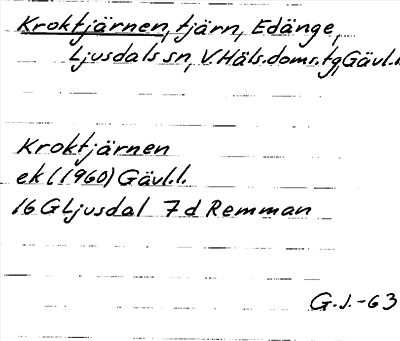 Kroktjärnen, tjärn, Edänge,
Ljusdals sn, V. Häls. doms. tg, Gävl.l.
Kroktjärnen
ek (1960) Gävl.l.
16 G Ljusdal 7 d Remman
G.J.-63